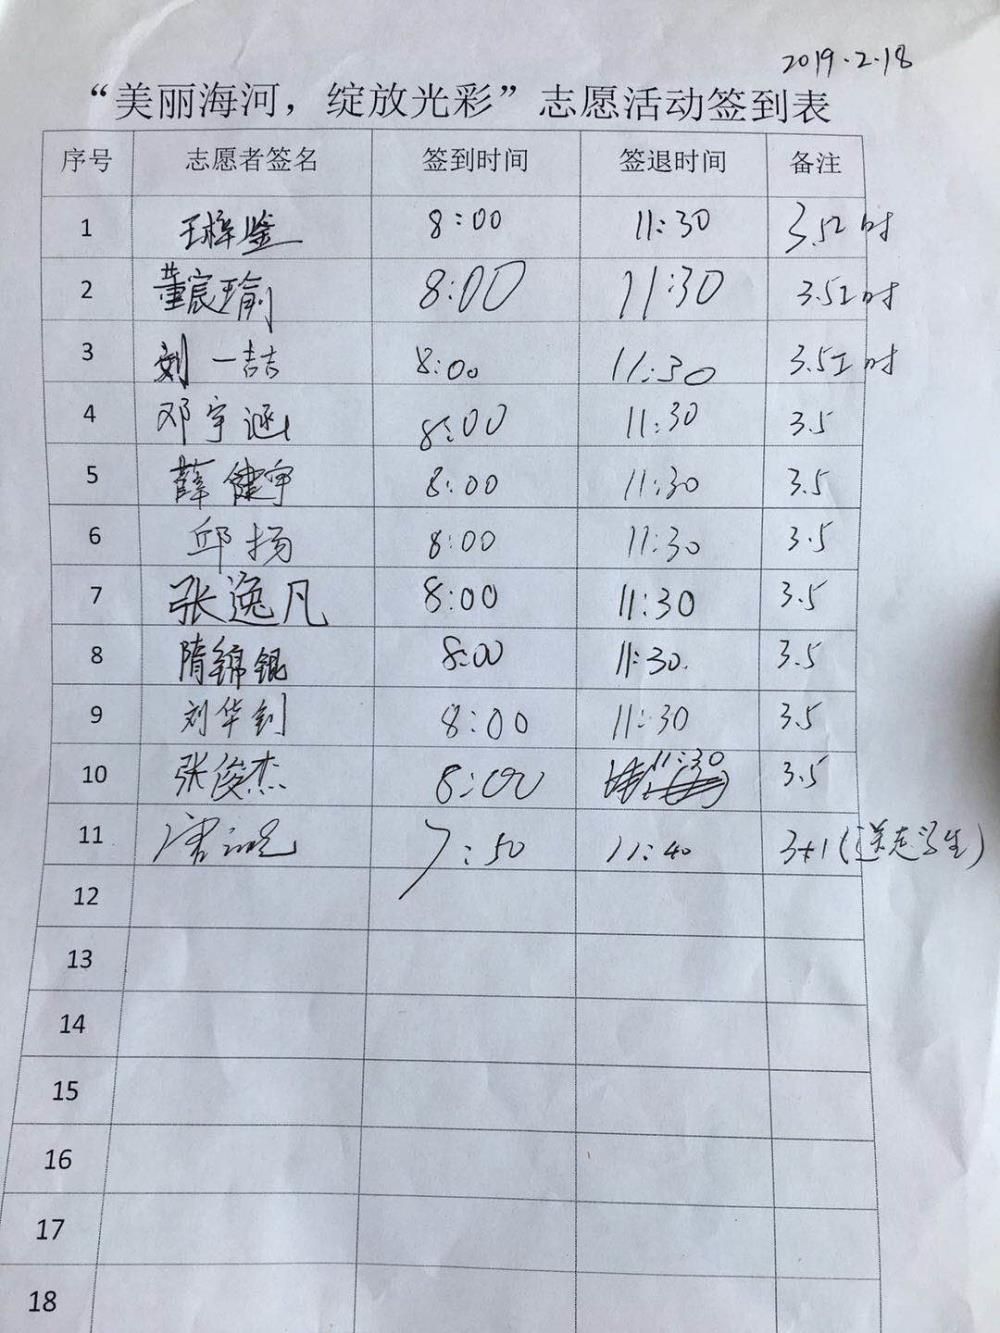 2019.2.18
“美丽海河，绽放光彩”志愿活动签到表
序号 志愿者签名 签到时间 签退时间 备注
1 王梓鉴 8:00 11:30 3.5工时
2 董宸瑜 8:00 11:30 3.5工时
3 刘一喆 8:00 11:30 3.5工时
4 邓宇涵 8:00 11:30 3.5
5 薛健宇 8:00 11:30 3.5
6 邱扬 8:00 11:30 3.5
7 张逸凡 8:00 11:30 3.5
8 隋锦锟 8:00 11:30 3.5
9 刘华钊 8:00 11:30 3.5
10 张俊杰 8:00 11:30 3.5
11 7:50 11:40 3+1(送志学生)
12
13
14
15
16
17
18